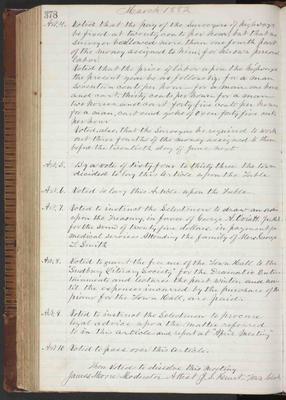 378
March 1882
Art. 4. Voted that the pay of the Surveyors of highways
be fixed at twenty cents per hour, but that no
Surveyor be allowed more than one fourth part
of the money assigned to him, for his own person
labor.
Voted that the price of labor upon the highways
the present year be as follows; for a man
seventeen cents per hour, for a man one horse
and cart, thirty cents per hour, for a man
two horses and cart forty five cents per hour
for a man, cart and yoke of oxen forty five cents
per hour
Voted also, that the Surveyors be required to work
out three fourths of the money assigned to them
before the twentieth day of June next
Art. 5. By a vote of sixty four to thirty three the town
decided to lay this Article upon the Table.
Art. 6. Voted to lay this Article upon the Table.
Art. 7. Voted to instruct the Selectmen to draw an order
upon the Treasury, in favor of George A. Oviatt,
for the sum of twenty five dollars, in payment for
medical services attending the family of Mrs George
L. Smith
Art. 8. Voted to grant the free use of the Town Hall to the
"Sudbury Literary Society" for the Dramatic Enter-
tainments and lectures the past winter, and un-
til the expenses incurred by the purchase of the
piano for the Town Hall, are paid.
Art. 9. Voted to instruct the Selectmen to procure
legal advice upon the matter referred
to in this article and report at "April Meeting"
Art. 10. Voted to pass over this Article.
Then Voted to dissolve this meeting
James Moore Moderator Attest J. S. Hunt, Town Clerk